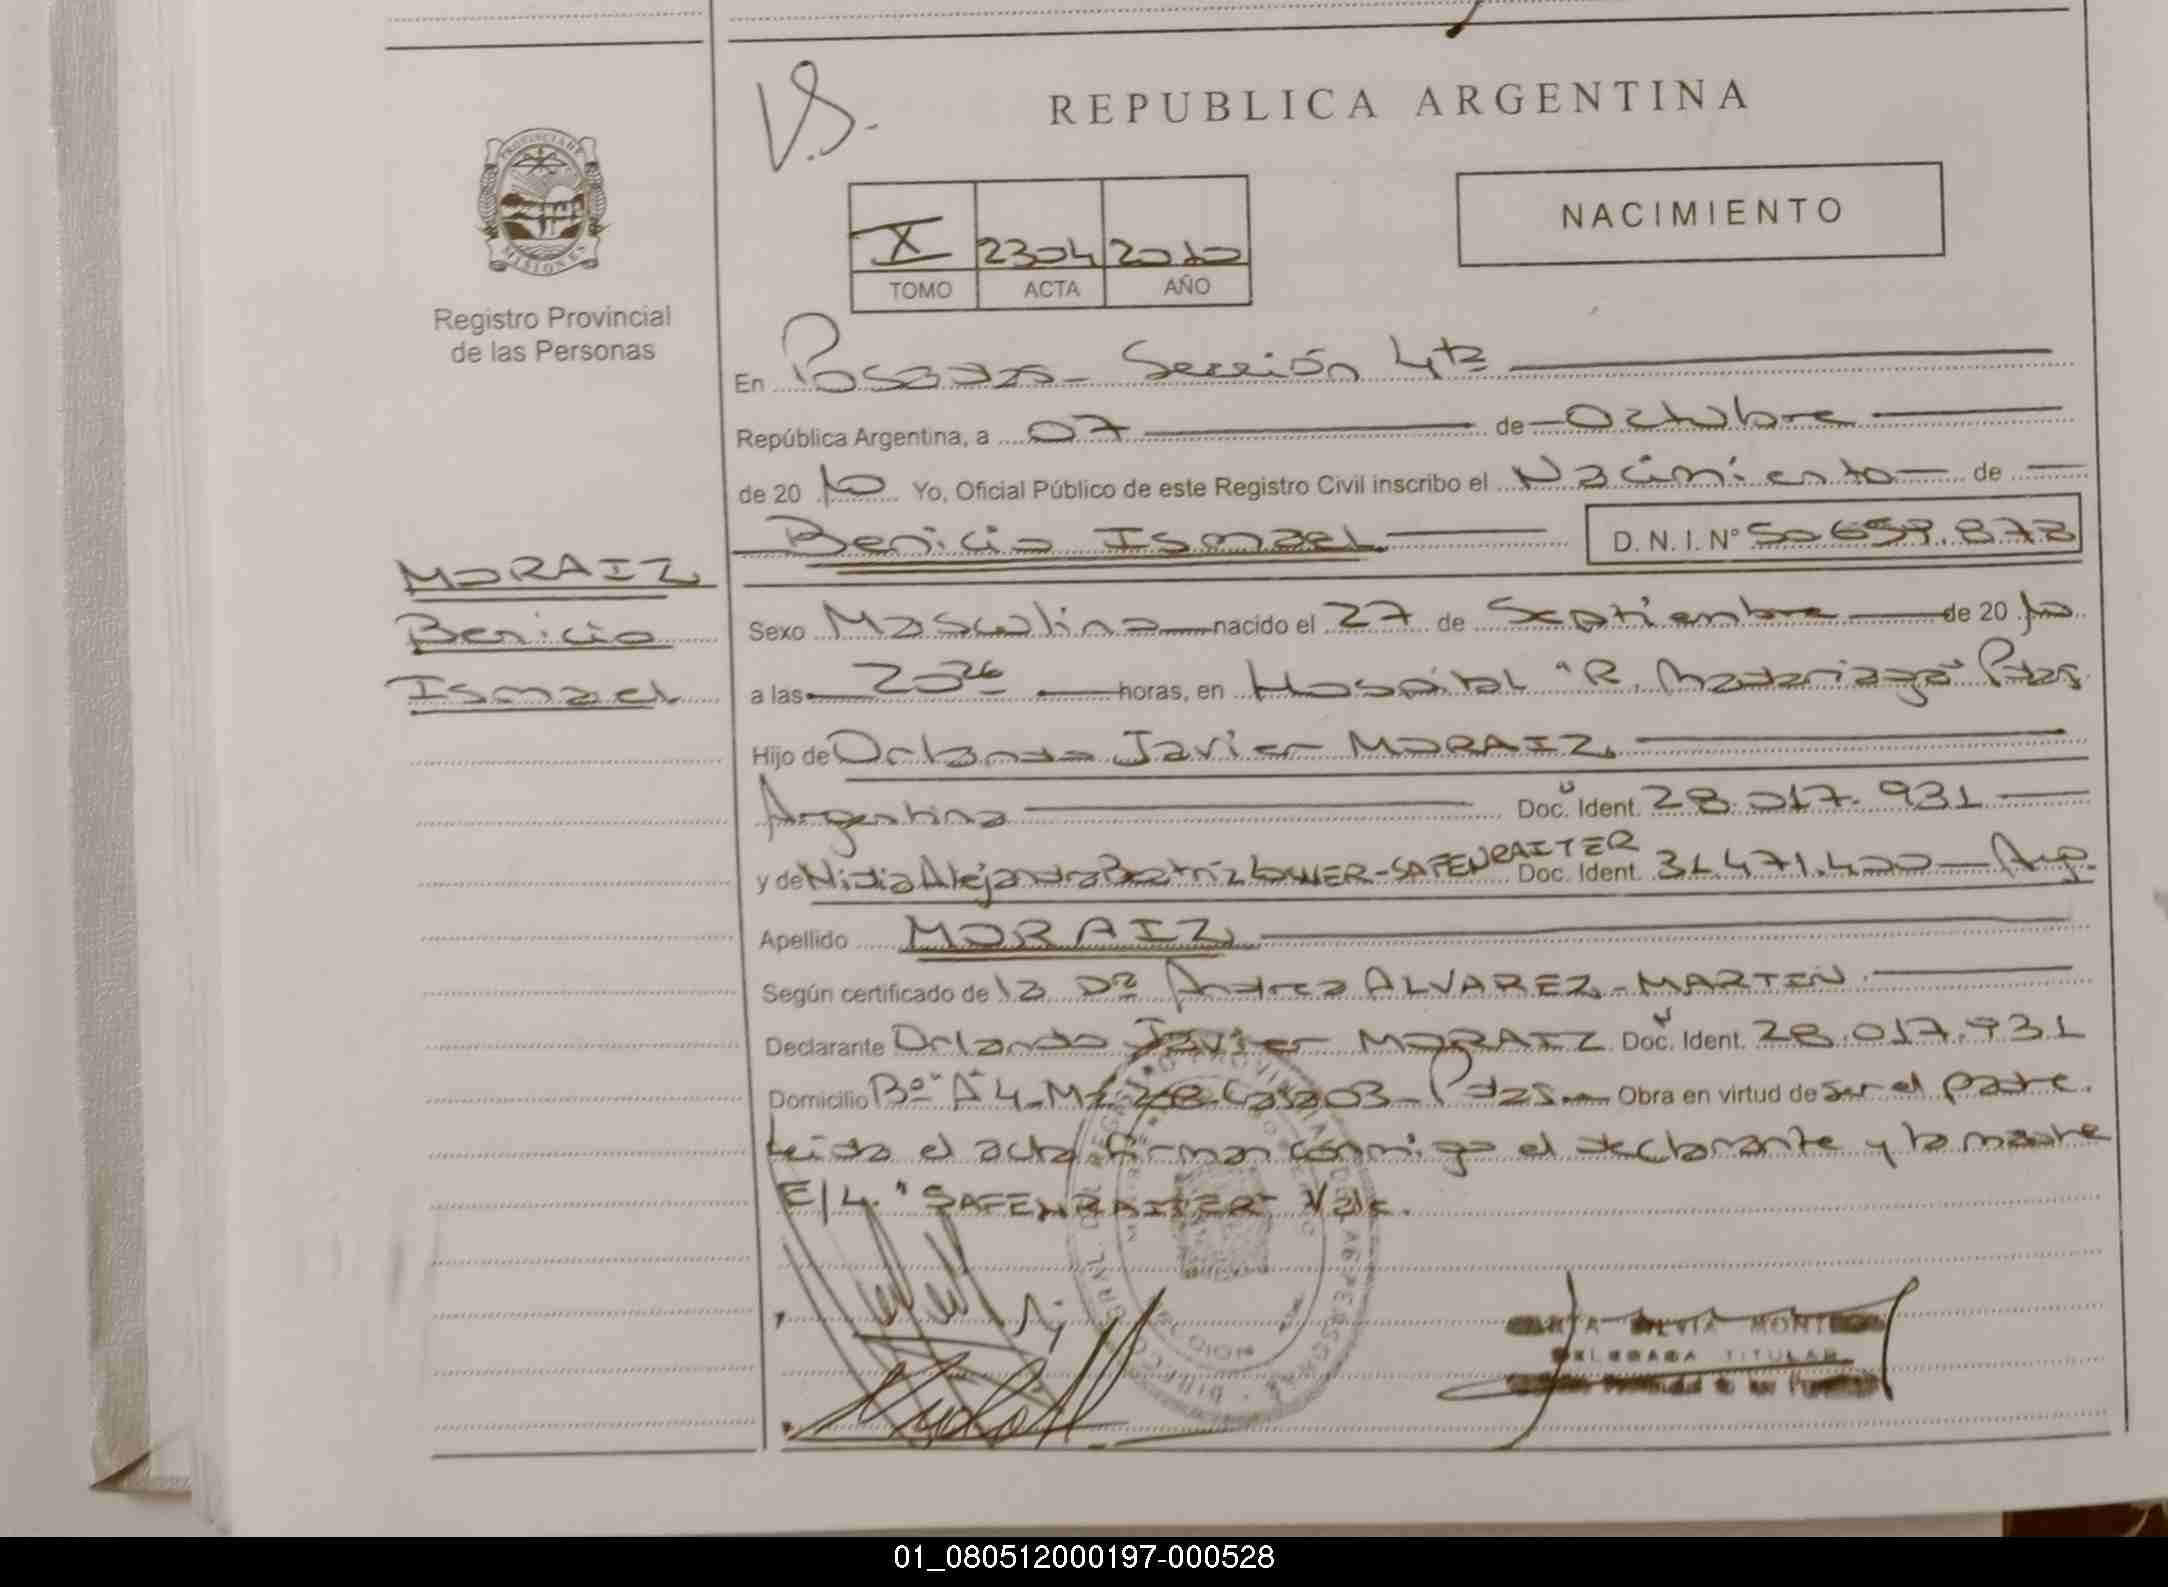 REPUBLICA ARGENTINA
PROVINCIA DE
MISIONES
Registro Provincial
de las Personas
NACIMIENTO
X 2304 2010
TOMO ACTA AÑO
En Posadas - Sección 4ta
República Argentina, a 07 de Octubre
de 20 10 Yo, Oficial Público de este Registro Civil inscribo el Nacimiento de
Benicio Ismael D.N.I. Nº 50.659.872
MORAIZ
Benicio
Ismael
Sexo Masculino nacido el 27 de Septiembre de 20 10
a las 20 26 horas, en Hospital "R. Madariaga" Pdas.
Hijo de Orlando Javier MORAIZ
Argentino Doc. Ident. 28.017.931
y de Nidia Alejandra Beatriz SAFENRAITER Doc. Ident. 31.471.400 - Arg.
Apellido MORAIZ
Según certificado de la Dra Andrea ALVAREZ - MARTIN
Declarante Orlando Javier MORAIZ Doc. Ident. 28.017.931
Domicilio Bº "A 4 - Mz 208 - Casa 03 - Pdas. Obra en virtud de ser el padre.
Leida el acta firman conmigo el declarante y la madre
E/L. "SAFENRAITER" Vale.
SILVIA
DELEGADA TITULAR
01_080512000197-000528